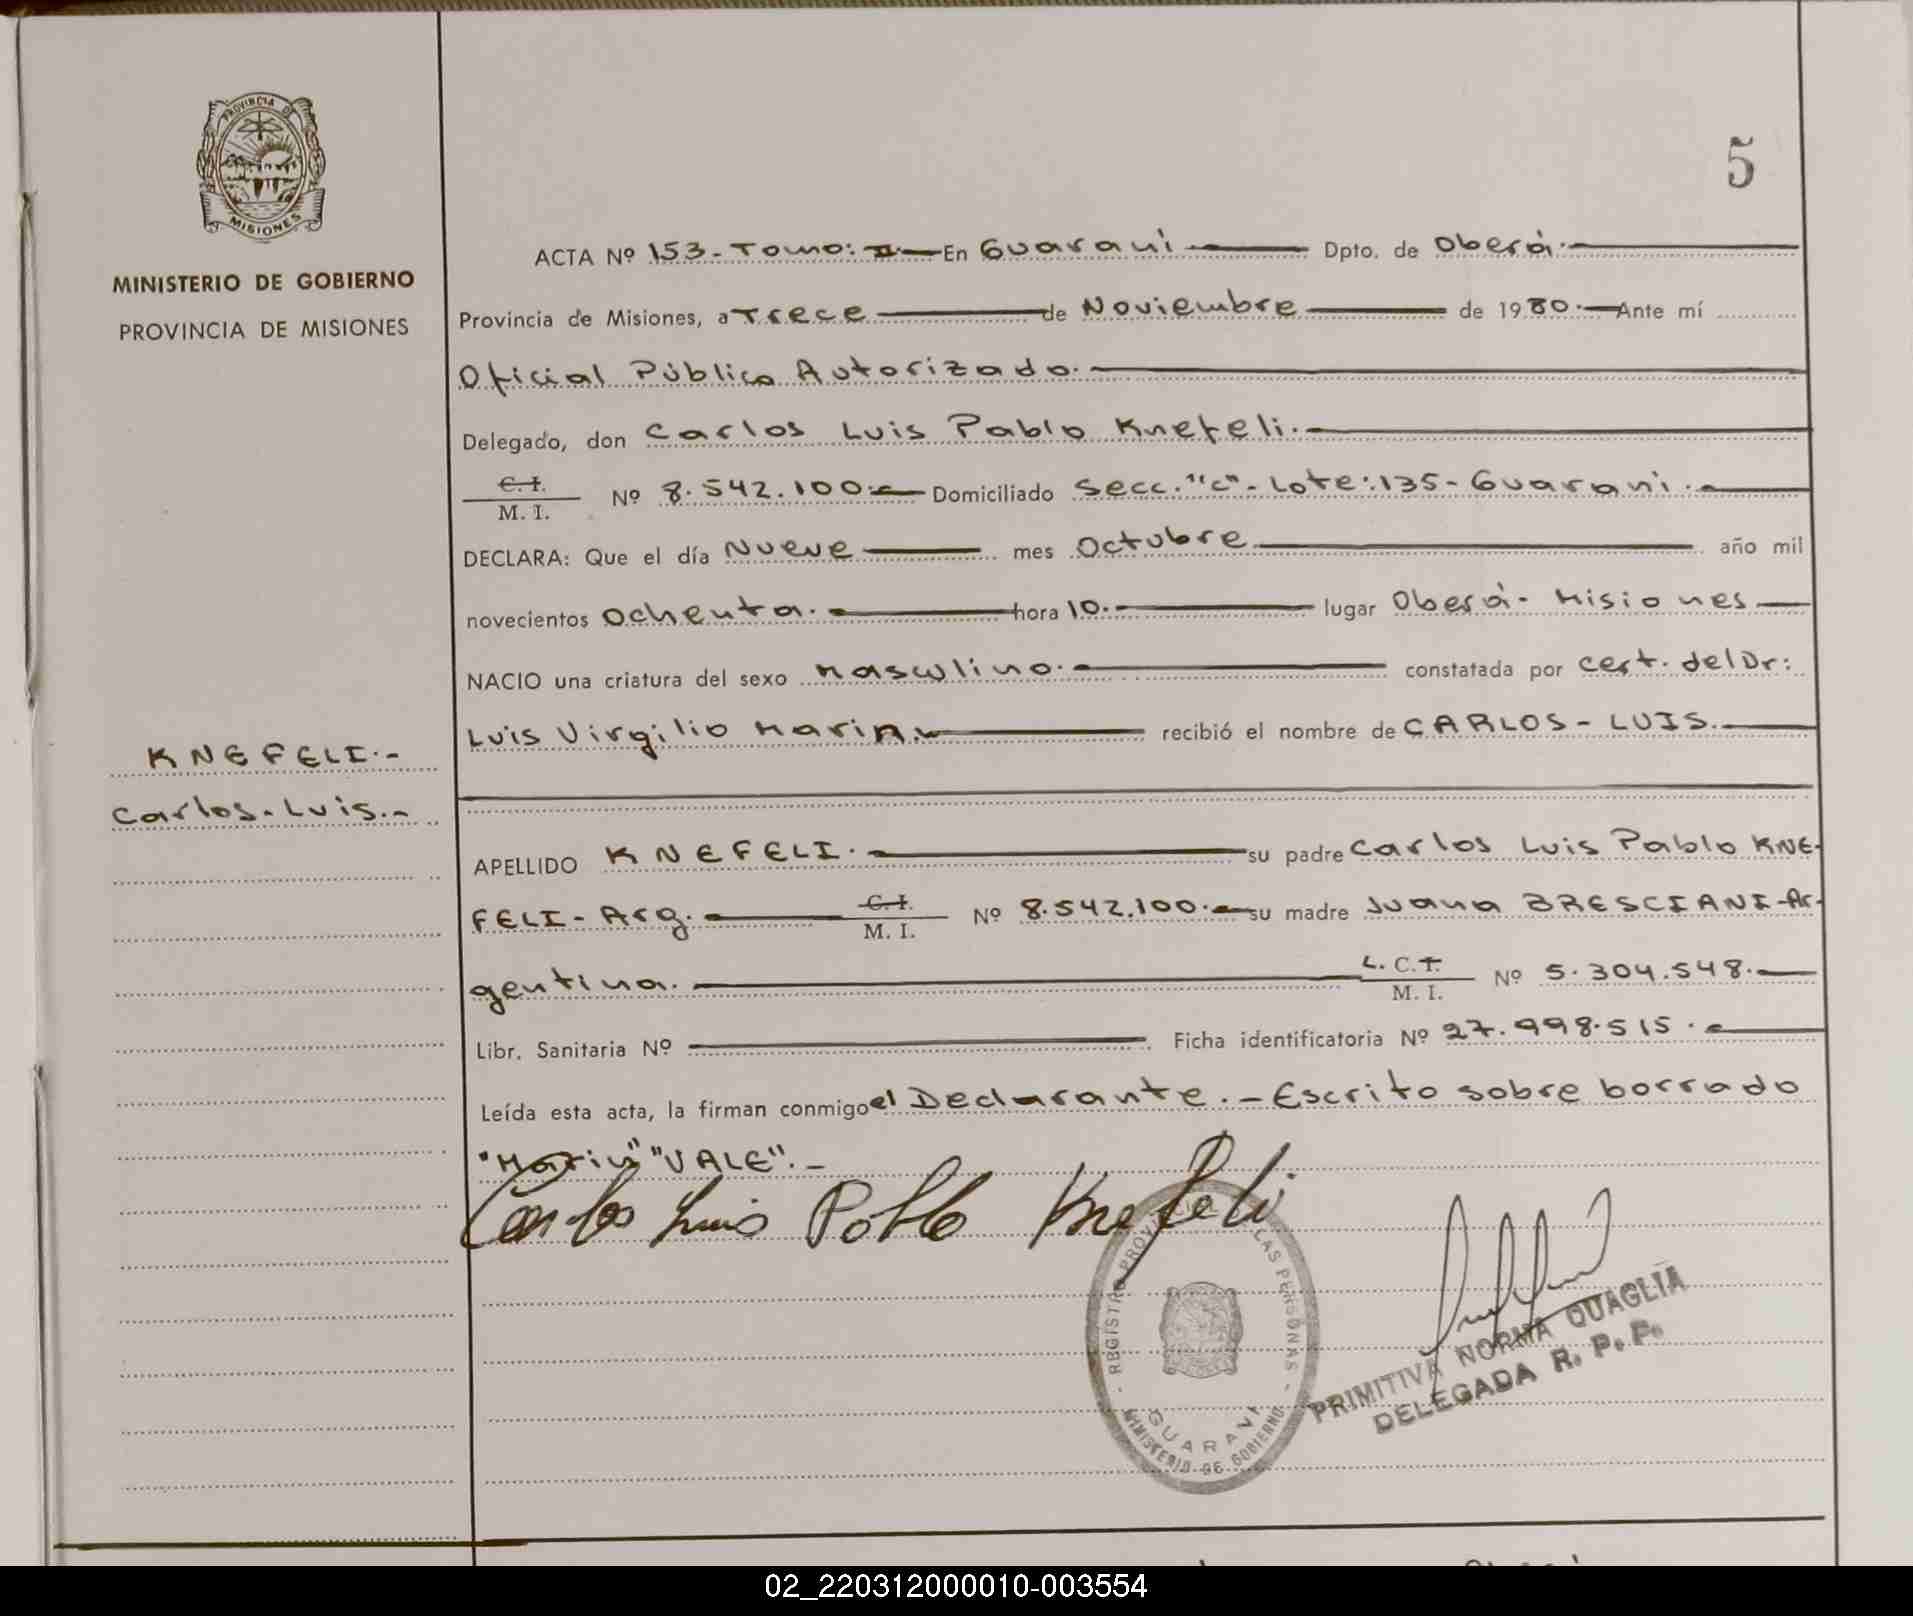 PROVINCIA DE
MISIONES
MINISTERIO DE GOBIERNO
PROVINCIA DE MISIONES
KNEFELI.-
Carlos-Luis.-
5
ACTA Nº 153-Tomo: II- En Guaraní Dpto. de Oberá.
Provincia de Misiones, a Trece de Noviembre de 1980.- Ante mí
Oficial Público Autorizado.
Delegado, don Carlos Luis Pablo Knefeli.
C. I.
M. I. Nº 8.542.100.- Domiciliado Secc. "C"- Lote: 135- Guaraní.
DECLARA: Que el día Nueve mes Octubre año mil
novecientos Ochenta. hora 10. lugar Oberá- Misiones
NACIO una criatura del sexo Masculino. constatada por cert. del Dr:
Luis Virgilio Marin. recibió el nombre de CARLOS- LUIS.
APELLIDO KNEFELI. su padre Carlos Luis Pablo KNE-
FELI- Arg. C. I. M. I. Nº 8.542.100.- su madre Juana BRESCIANI-Ar-
gentina. L. C. I. M. I. Nº 5.304.548.-
Libr. Sanitaria Nº Ficha identificatoria Nº 27.998.515.
Leída esta acta, la firman conmigo el Declarante.- Escrito sobre borrado
"Marin" "VALE".-
Carlos Luis Pablo Knefeli
REGISTRO PROVINCIAL LAS PERSONAS
GUARANI
MINISTERIO DE GOBIERNO
PRIMITIVA NORMA QUAGLIA
DELEGADA R. P. P.
02_220312000010-003554